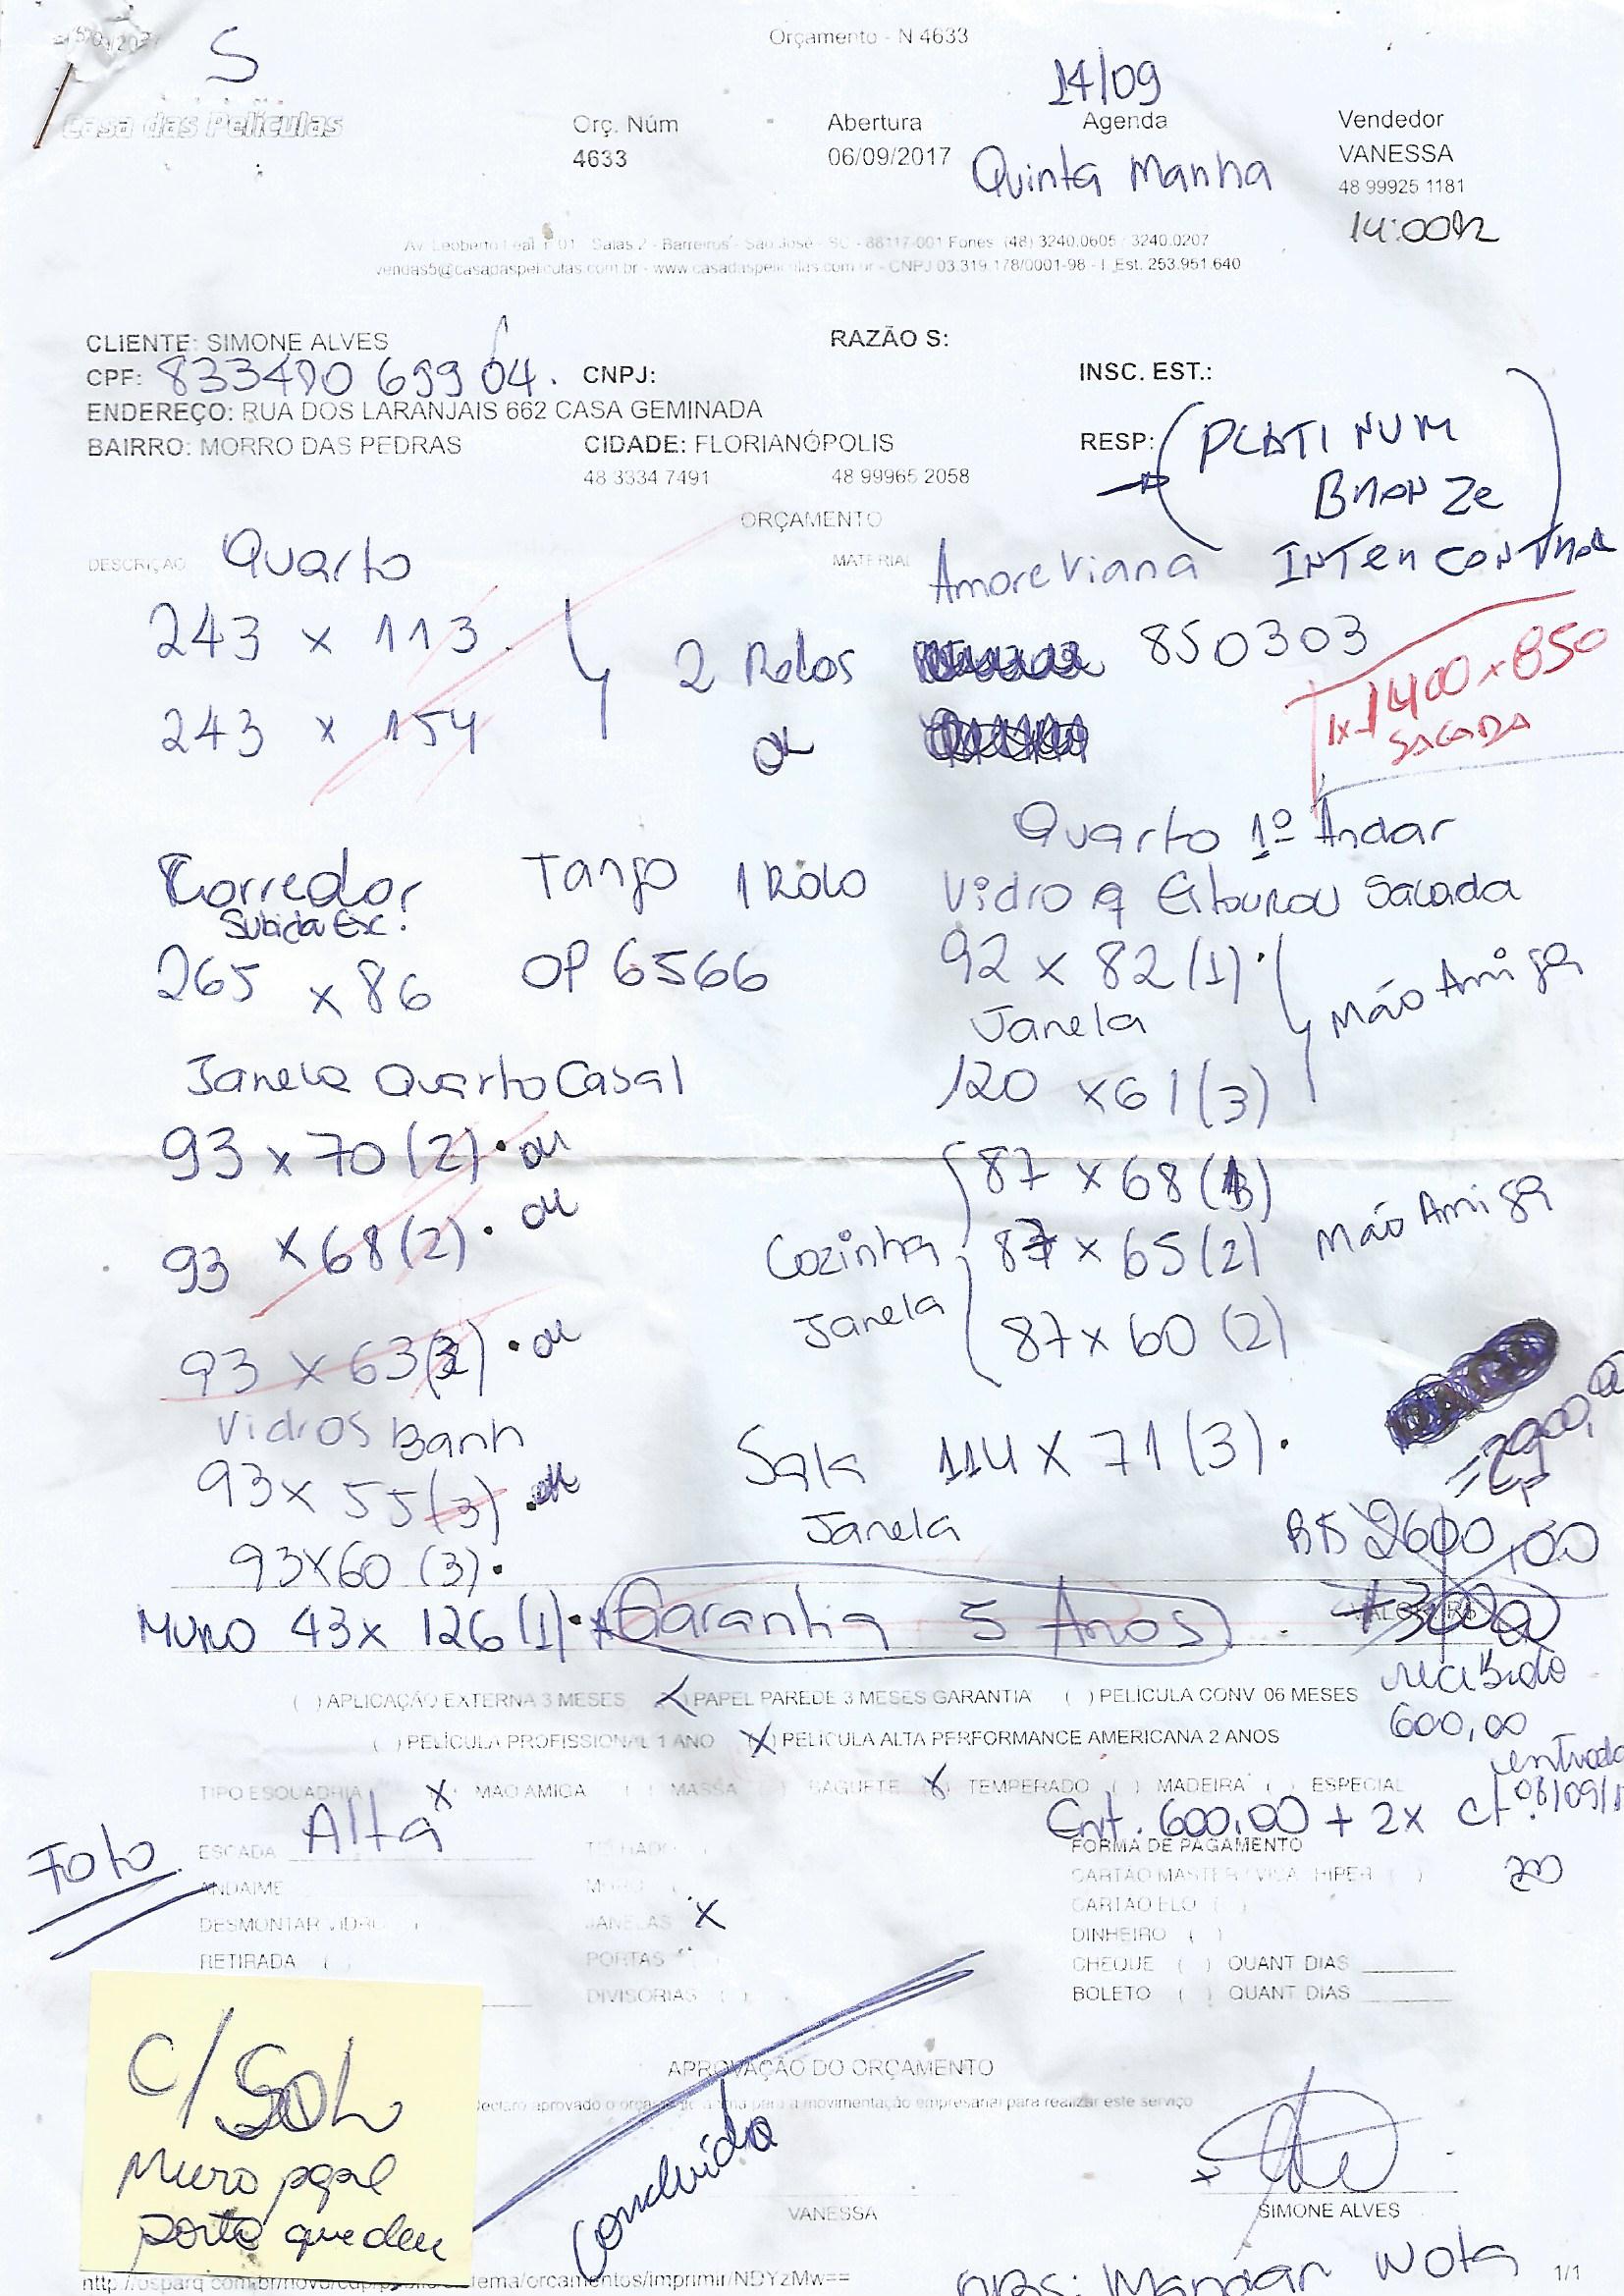 Orçamento - N 4633
S
14/09
Casa das Películas
Orç. Núm Abertura Agenda Vendedor
4633 06/09/2017 Quinta Manha VANESSA
48 99925 1181
14:00h
Salas 2 - Barreiros - São José - SC - 88117-001 Fones (48) 3240.0605 / 3240.0207
vendas5@casadaspeliculas.com.br - www.casadaspeliculas.com.br - CNPJ 03.319.178/0001-98 - I. Est. 253.951.640
CLIENTE: SIMONE ALVES RAZÃO S:
CPF: CNPJ: INSC. EST.:
ENDEREÇO: RUA DOS LARANJAIS 662 CASA GEMINADA
BAIRRO: MORRO DAS PEDRAS CIDADE: FLORIANÓPOLIS RESP:
48 3334 7491 48 99965 2058
(PLATINUM
BRONZE)
ORÇAMENTO
DESCRIÇÃO Quarto MATERIAL INTERCONTROL
243 x 113 2 Rolos 850303
243 x 154 ok
1x 1400 x 850
SACADA
Quarto 1º Andar
Corredor Tango 1 Rolo Vidro q Estourou Sacada
Subida Esc.
265 x 86 OP 6566 92 x 82 (1) Mão Amiga
Janela
Janela Quarto Casal 120 x 61 (3)
93 x 70 (2) ok
87 x 68
93 x 68 (2) ok
Cozinha 87 x 65 (2) Mão Amiga
Janela 87 x 60 (2)
93 x 63 ok
Vidros Banh
93 x 55 (3) ok
Sala 114 x 71 (3)
Janela
93 x 60 (3)
R$ 2600,00
MURO 43 x 126 (1) Garantia 5 Anos + 300
VALOR R$
recibido
600,00
entrada
( ) APLICAÇÃO EXTERNA 3 MESES (X) PAPEL PAREDE 3 MESES GARANTIA ( ) PELÍCULA CONV 06 MESES
( ) PELÍCULA PROFISSIONAL 1 ANO (X) PELÍCULA ALTA PERFORMANCE AMERICANA 2 ANOS
TIPO ESQUADRIA X MAO AMIGA ( ) MASSA ( ) BAGUETE X TEMPERADO ( ) MADEIRA ( ) ESPECIAL
Ent. 600,00 + 2x
Foto
ESCADA Alta X TELHADO FORMA DE PAGAMENTO
ANDAIME MURO CARTAO MASTER / VISA / HIPER ( )
DESMONTAR VIDRO JANELAS X CARTAO ELO ( )
DINHEIRO ( )
RETIRADA ( ) PORTAS CHEQUE ( ) QUANT DIAS
DIVISORIAS ( ) BOLETO ( ) QUANT DIAS
C/ SOL
Muro
APROVAÇÃO DO ORÇAMENTO
movimentação empresarial para realizar este serviço
concluído
x
VANESSA SIMONE ALVES
OBS: Mandar Nota
1/1